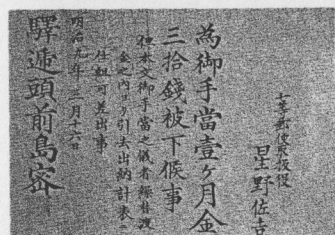 七等郵便取扱役
星野佐吉
為御手當壹ヶ月金
三拾錢被下候事
但本文御手當之儀者
金之内ヨリ引去出納計表ニ
仕組可差出事
明治九年三月十六日
驛逓頭前島密